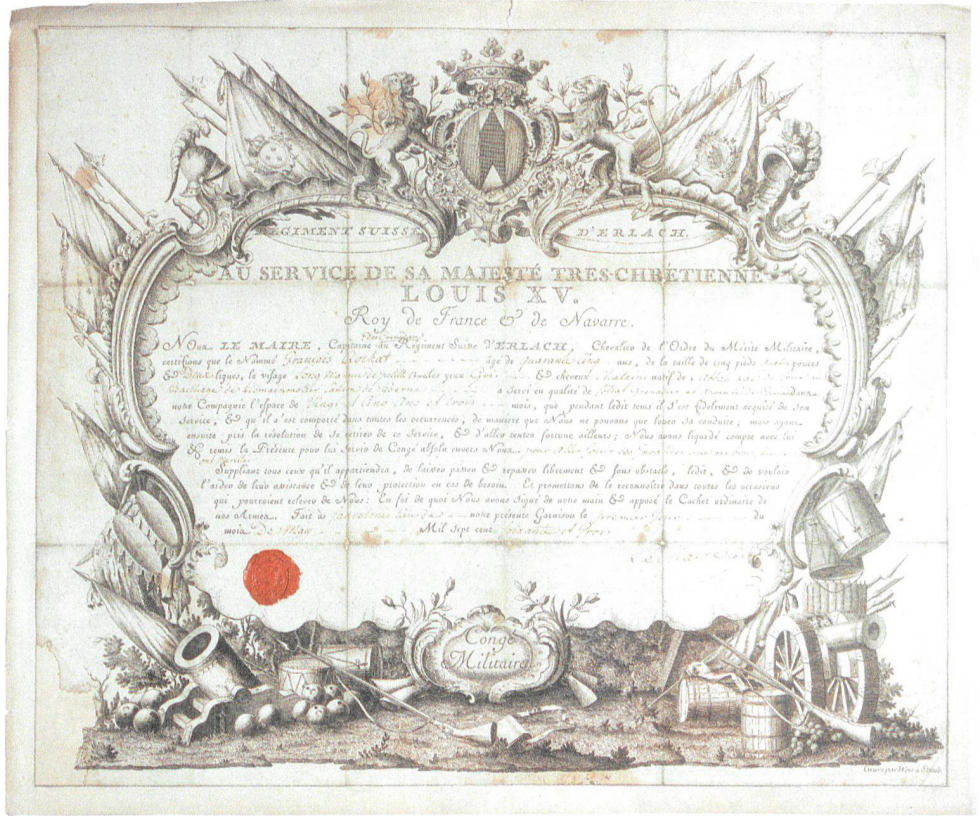 REGIMENT SUISSE D'ERLACH.
AU SERVICE DE SA MAJESTÉ TRES-CHRÉTIENNE
LOUIS XV.
Roy de France & de Navarre.
Nous LE MAIRE, Capitaine au Régiment Suisse D'ERLACH, Chevalier de l'Ordre du Mérite Militaire,
certifions que le Nommé François Rochat âgé de ans, de la taille de cinq pieds pouces
& lignes, le visage long yeux Gris & cheveux Chatain natif de
Bailliage de a Servi en qualité de dans
notre Compagnie l'espace de Vingt Cinq Ans et trois mois, que pendant ledit tems il s'est fidelement acquité de son
Service, & qu'il s'est comporté dans toutes les occurrences, de maniere que Nous ne pouvons que louer sa conduite, mais ayant
ensuite pris la résolution de se retirer de ce Service, & d'aller tenter fortune ailleurs; Nous avons liquidé compte avec lui
& remis la Présente pour lui servir de Congé absolu envers Nous
Suppliant tous ceux qu'il appartiendra, de laisser passer & repasser librement & sans obstacle, ledit, & de vouloir
l'aider de leur assistance & de leur protection en cas de besoin. Et promettons de le reconnoître dans toutes les occasions
qui pourroient relever de Nous: En foi de quoi Nous avons Signé de notre main & apposé le Cachet ordinaire de
nos Armes. Fait à notre présente Garnison le premier Jour du
mois De May Mil Sept cent Soixante et Trois
Congé
Militaire